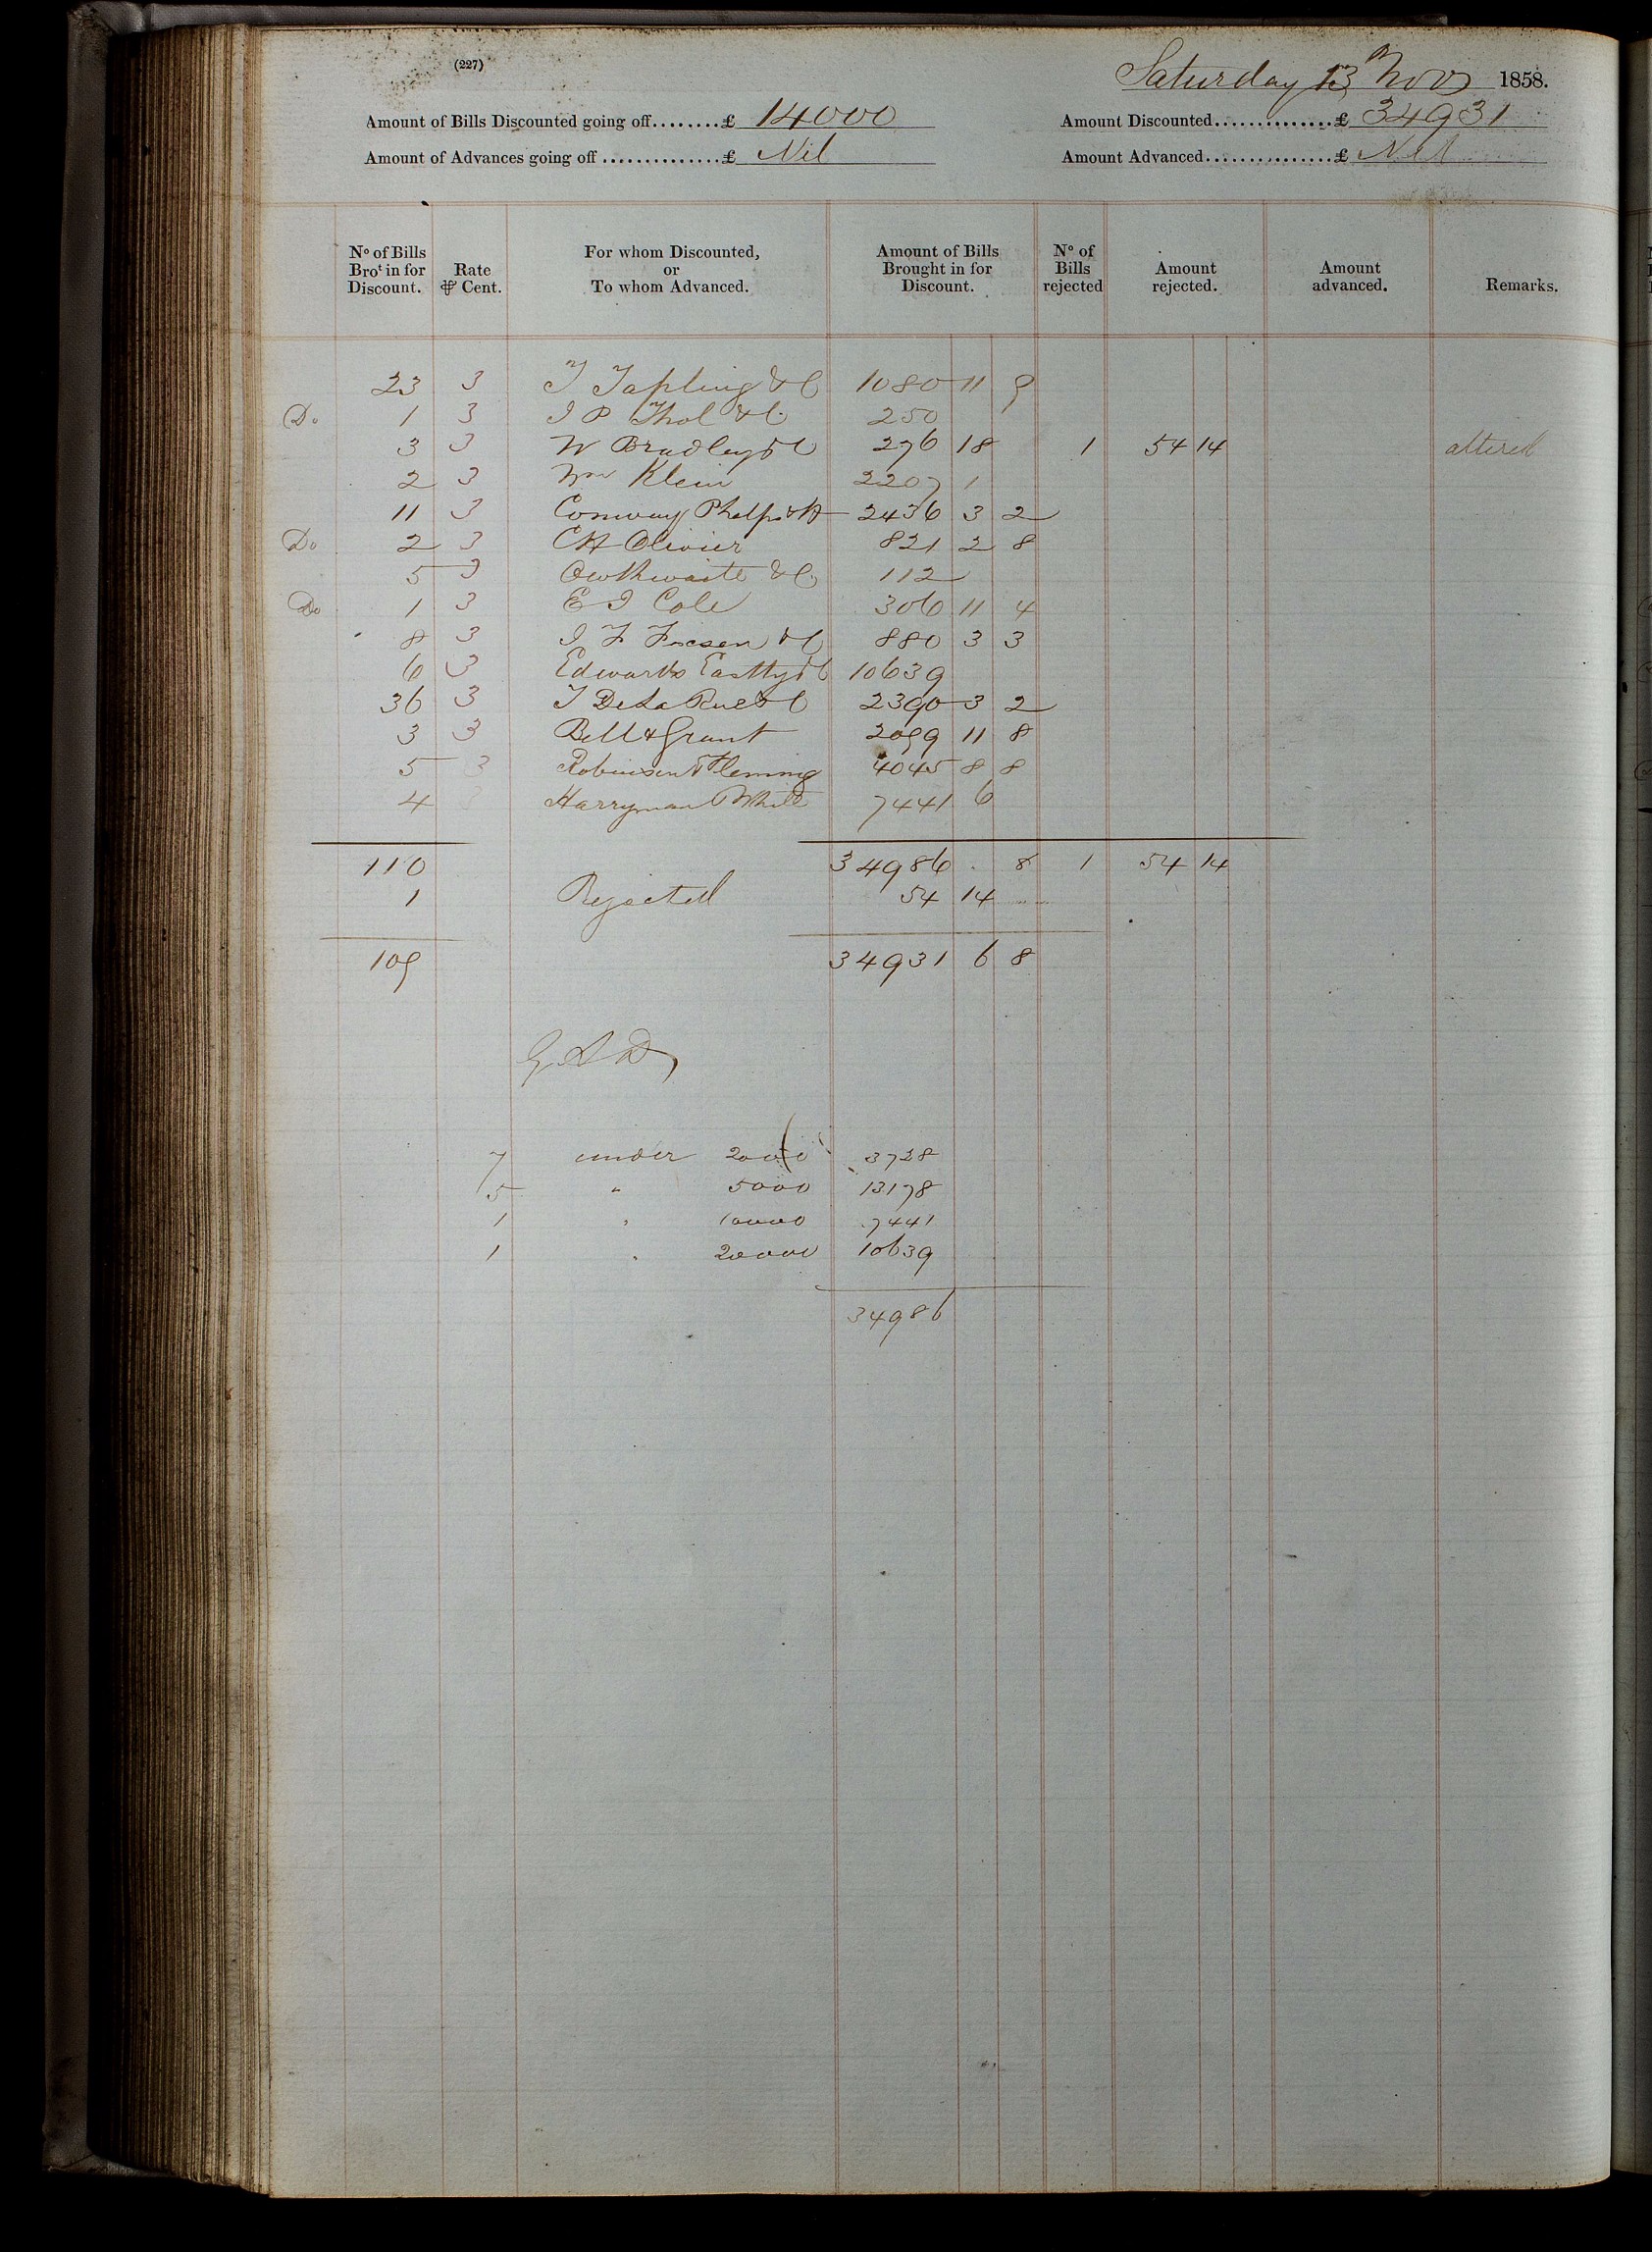 (227)
Saturday 13 Nov 1858.
Amount of Bills Discounted going off........£ 14000 Amount Discounted..............£ 34931
Amount of Advances going off..............£ Nil Amount Advanced...............£ Nil
No of Bills Brot in for Discount. Rate ⅌ Cent. For whom Discounted, or To whom Advanced. Amount of Bills Brought in for Discount. No of Bills rejected Amount rejected. Amount advanced. Remarks.
23 3 T Tapling & C 1080 11 9
Do 1 3 I P Thol & C 250
3 3 W Bradley & C 276 18 1 54 14 altered
2 3 Wm Klein 2207 1
11 3 Conway Phelps & 2436 3 2
Do 2 3 C H Olivier 821 2 8
5 3 Outhwaite & C 112
Do 1 3 E I Cole 306 11 4
8 3 I F & C 880 3 3
6 3 Edwards Eastty & C 10639
36 3 T De La Rue & C 2390 3 2
3 3 Bell & Grant 2099 11 8
5 3 Robinson & Fleming 4045 8 8
4 3 Harryman White 7441 6
110 34986 . 8 1 54 14
1 Rejected 54 14
109 34931 6 8
7 under 2000 3728
5 " 5000 13178
1 " 10000 7441
1 " 20000 10639
34986